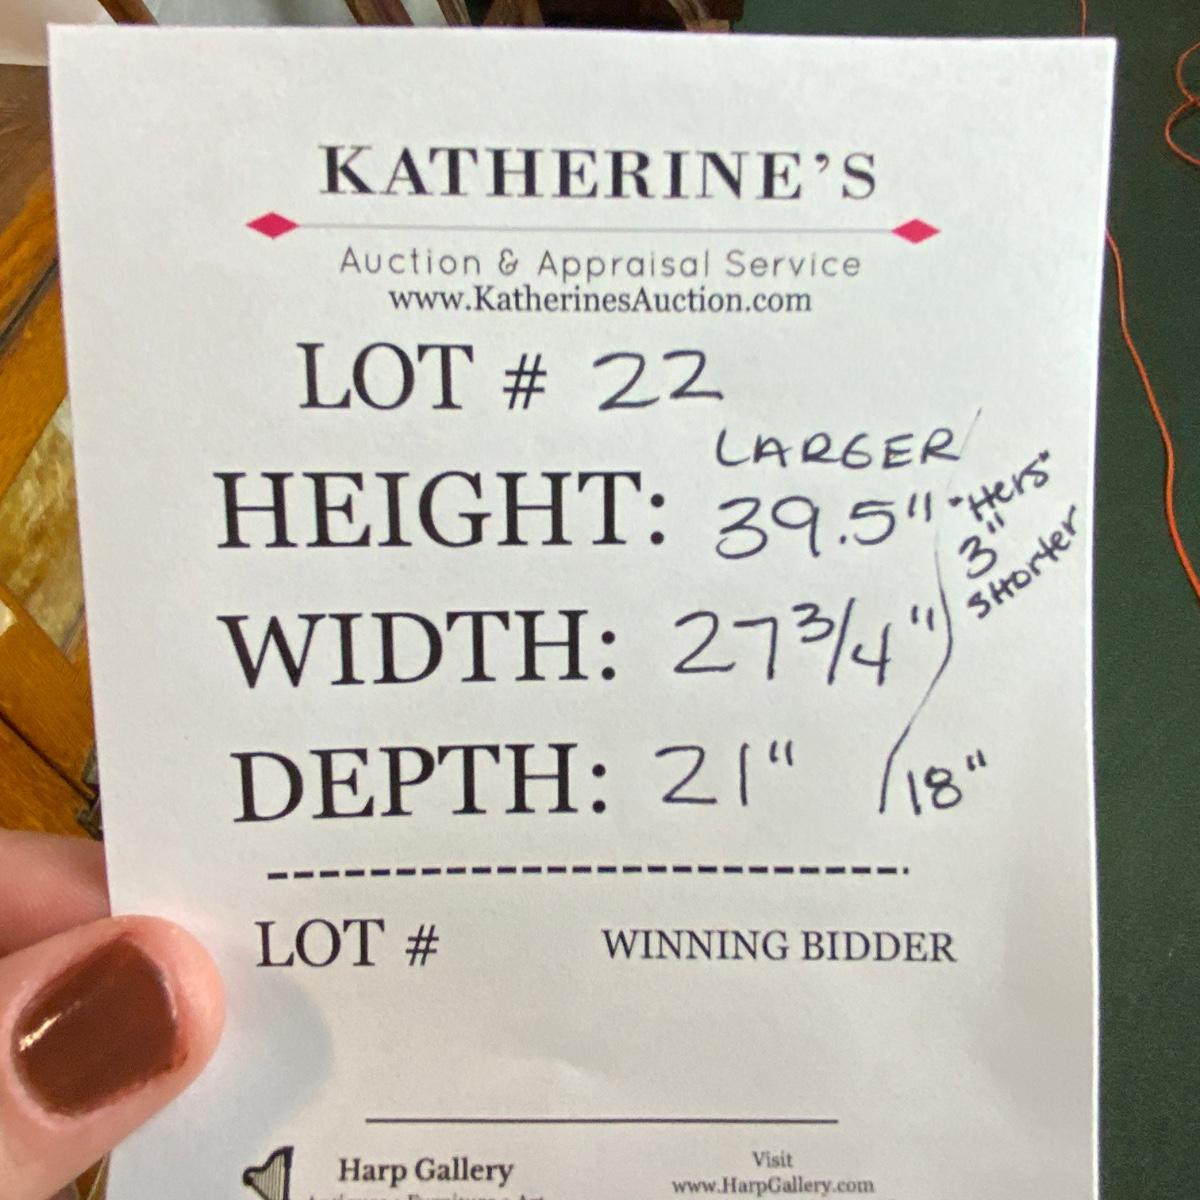 KATHERINE'S
Auction & Appraisal Service
www.KatherinesAuction.com
LOT # 22
LARGER
HEIGHT: 39.5" "Hers"
3"
shorter
WIDTH: 27 3/4"
DEPTH: 21" / 18"
LOT # WINNING BIDDER
Harp Gallery
Visit
www.HarpGallery.com